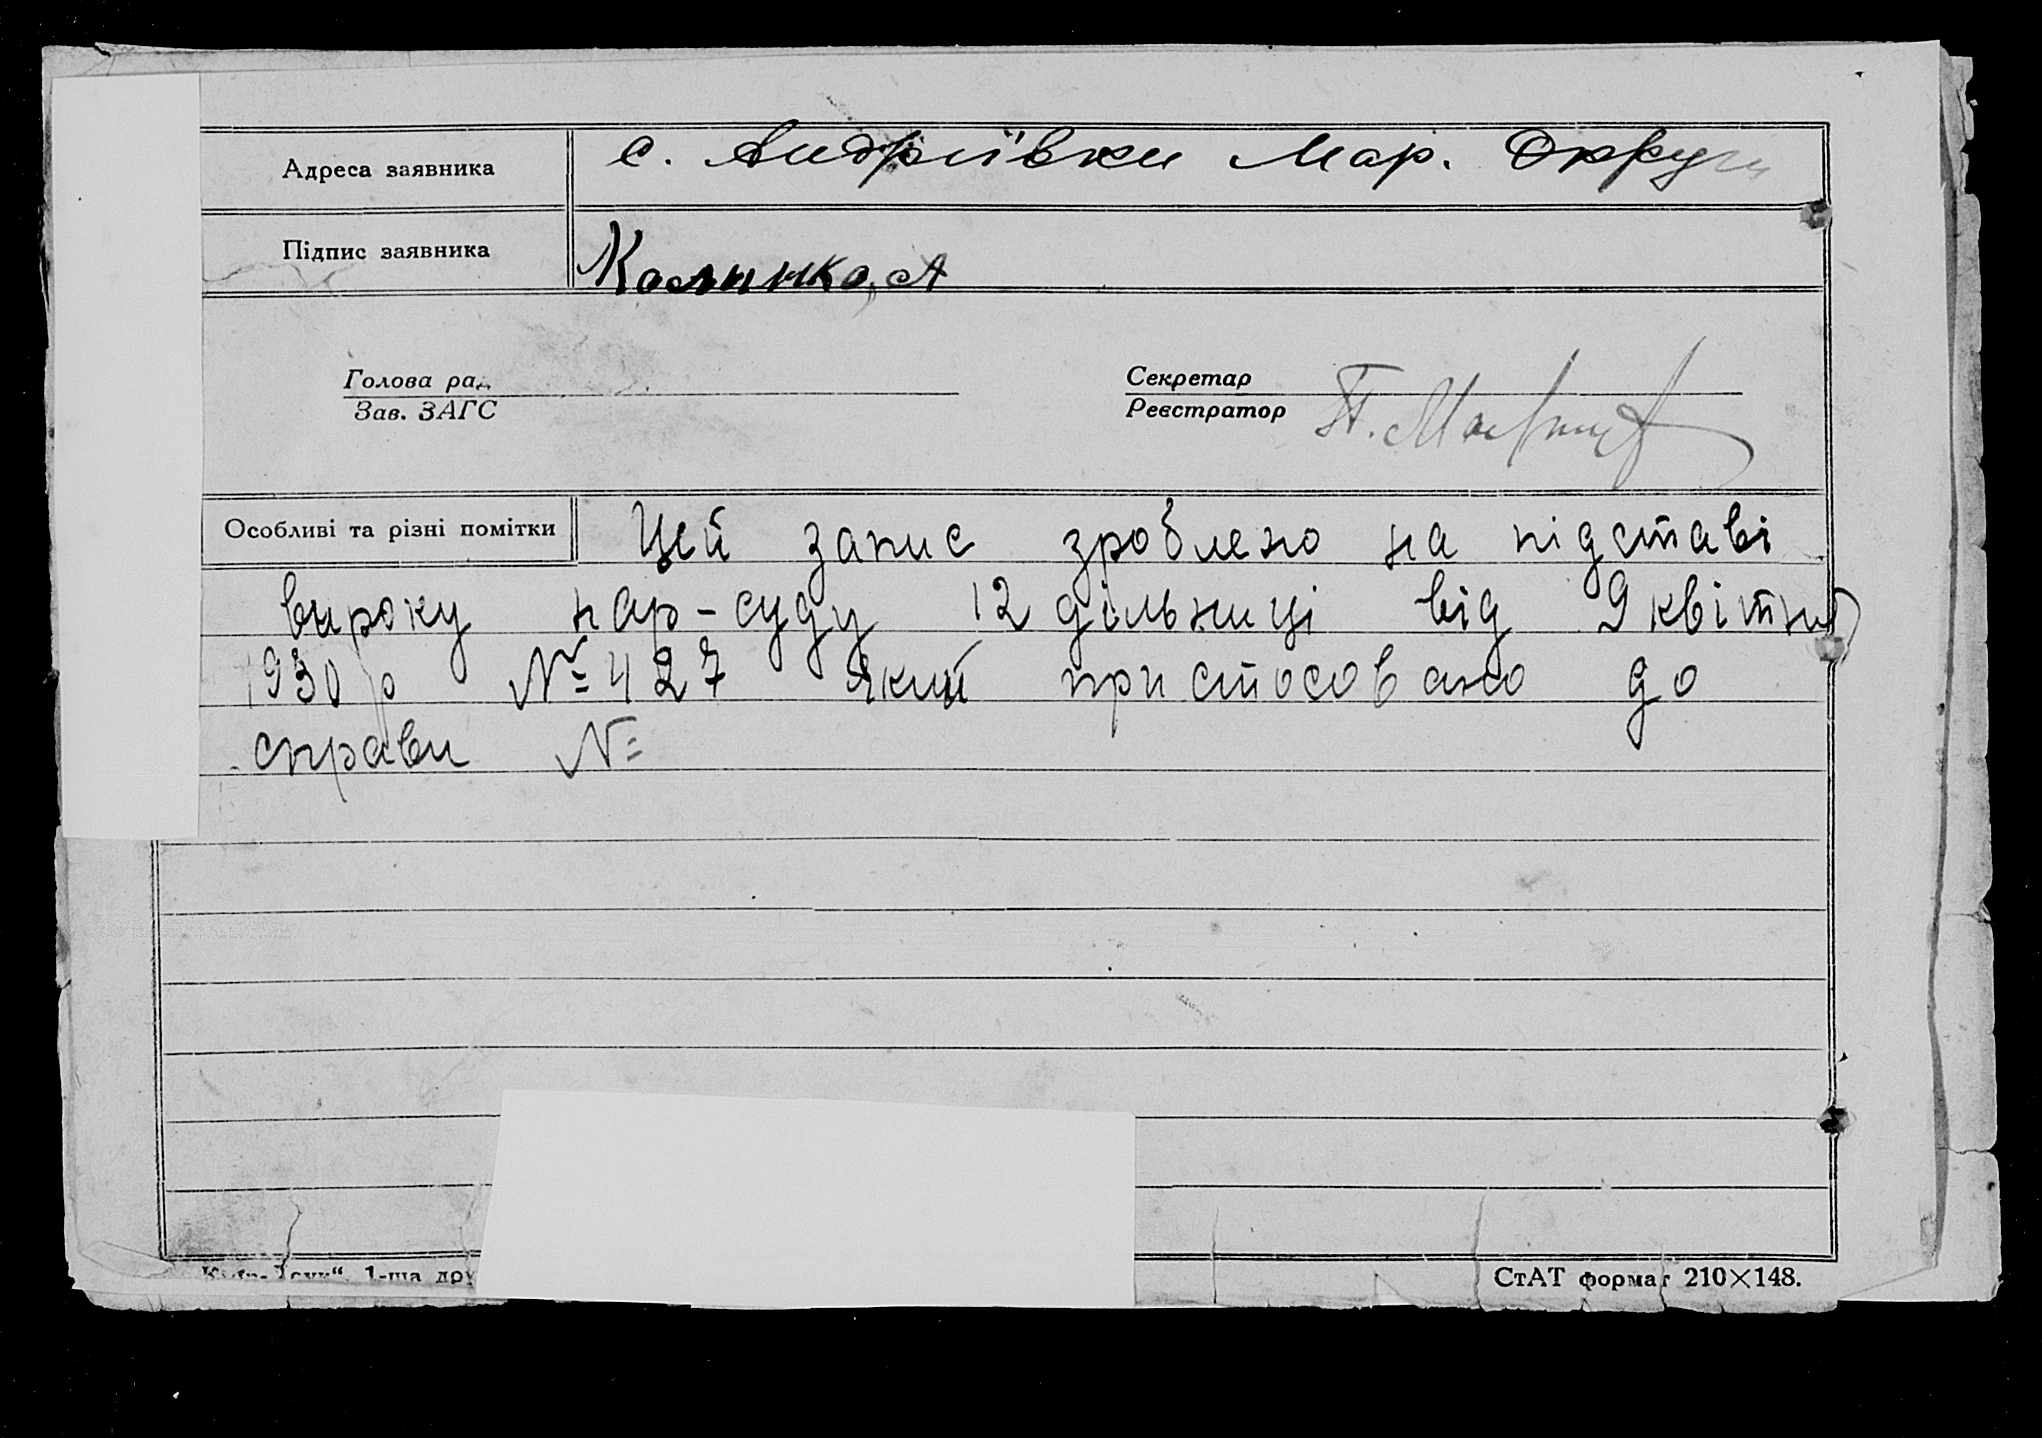 Адреса заявника с. Андріївки Мар. Округи
Підпис заявника Калинка, А
Голова рад
Зав. ЗАГС
Секретар
Реєстратор
Особливі та різні помітки Цей запис зроблено на підставі
вироку нар-суду 12 дільниці від 9 квітня
1930 р № 427 який пристосовано до
справи №
1-ша дру
СтАТ формат 210×148.